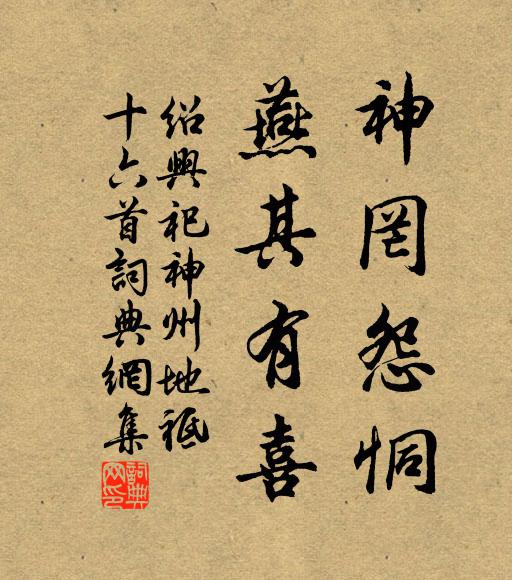 神罔怨恫
燕其有喜
紹興祀神州地祇
十六首詞典網集
詞典網印